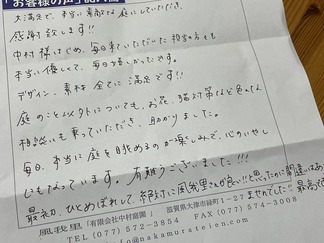 「お客様の声」記入
大満足で、本当に素敵なお庭にしていただき、
感謝致します!!
中村様はじめ、毎日来ていただいた担当の方も
本当に優しくて、毎日が楽しかったです。
デザイン、素材 全てに満足です!!
庭のこと以外についても、お花、猫対策など色々な
相談にも乗っていただき、助かりました。
毎日、本当に庭を眺めるのが楽しみで、心のいやし
にもなっています。有難うございました!!!
最初、ひとめぼれして、絶対に風我里さんが良い!!と思ったのに間違いはあり
ませんでした!! 最高
風我里 「有限会社中村庭園」 滋賀県大津市緑町1-27
TEL(077)572-3854 FAX(077)574-3008
nakamurateien.com